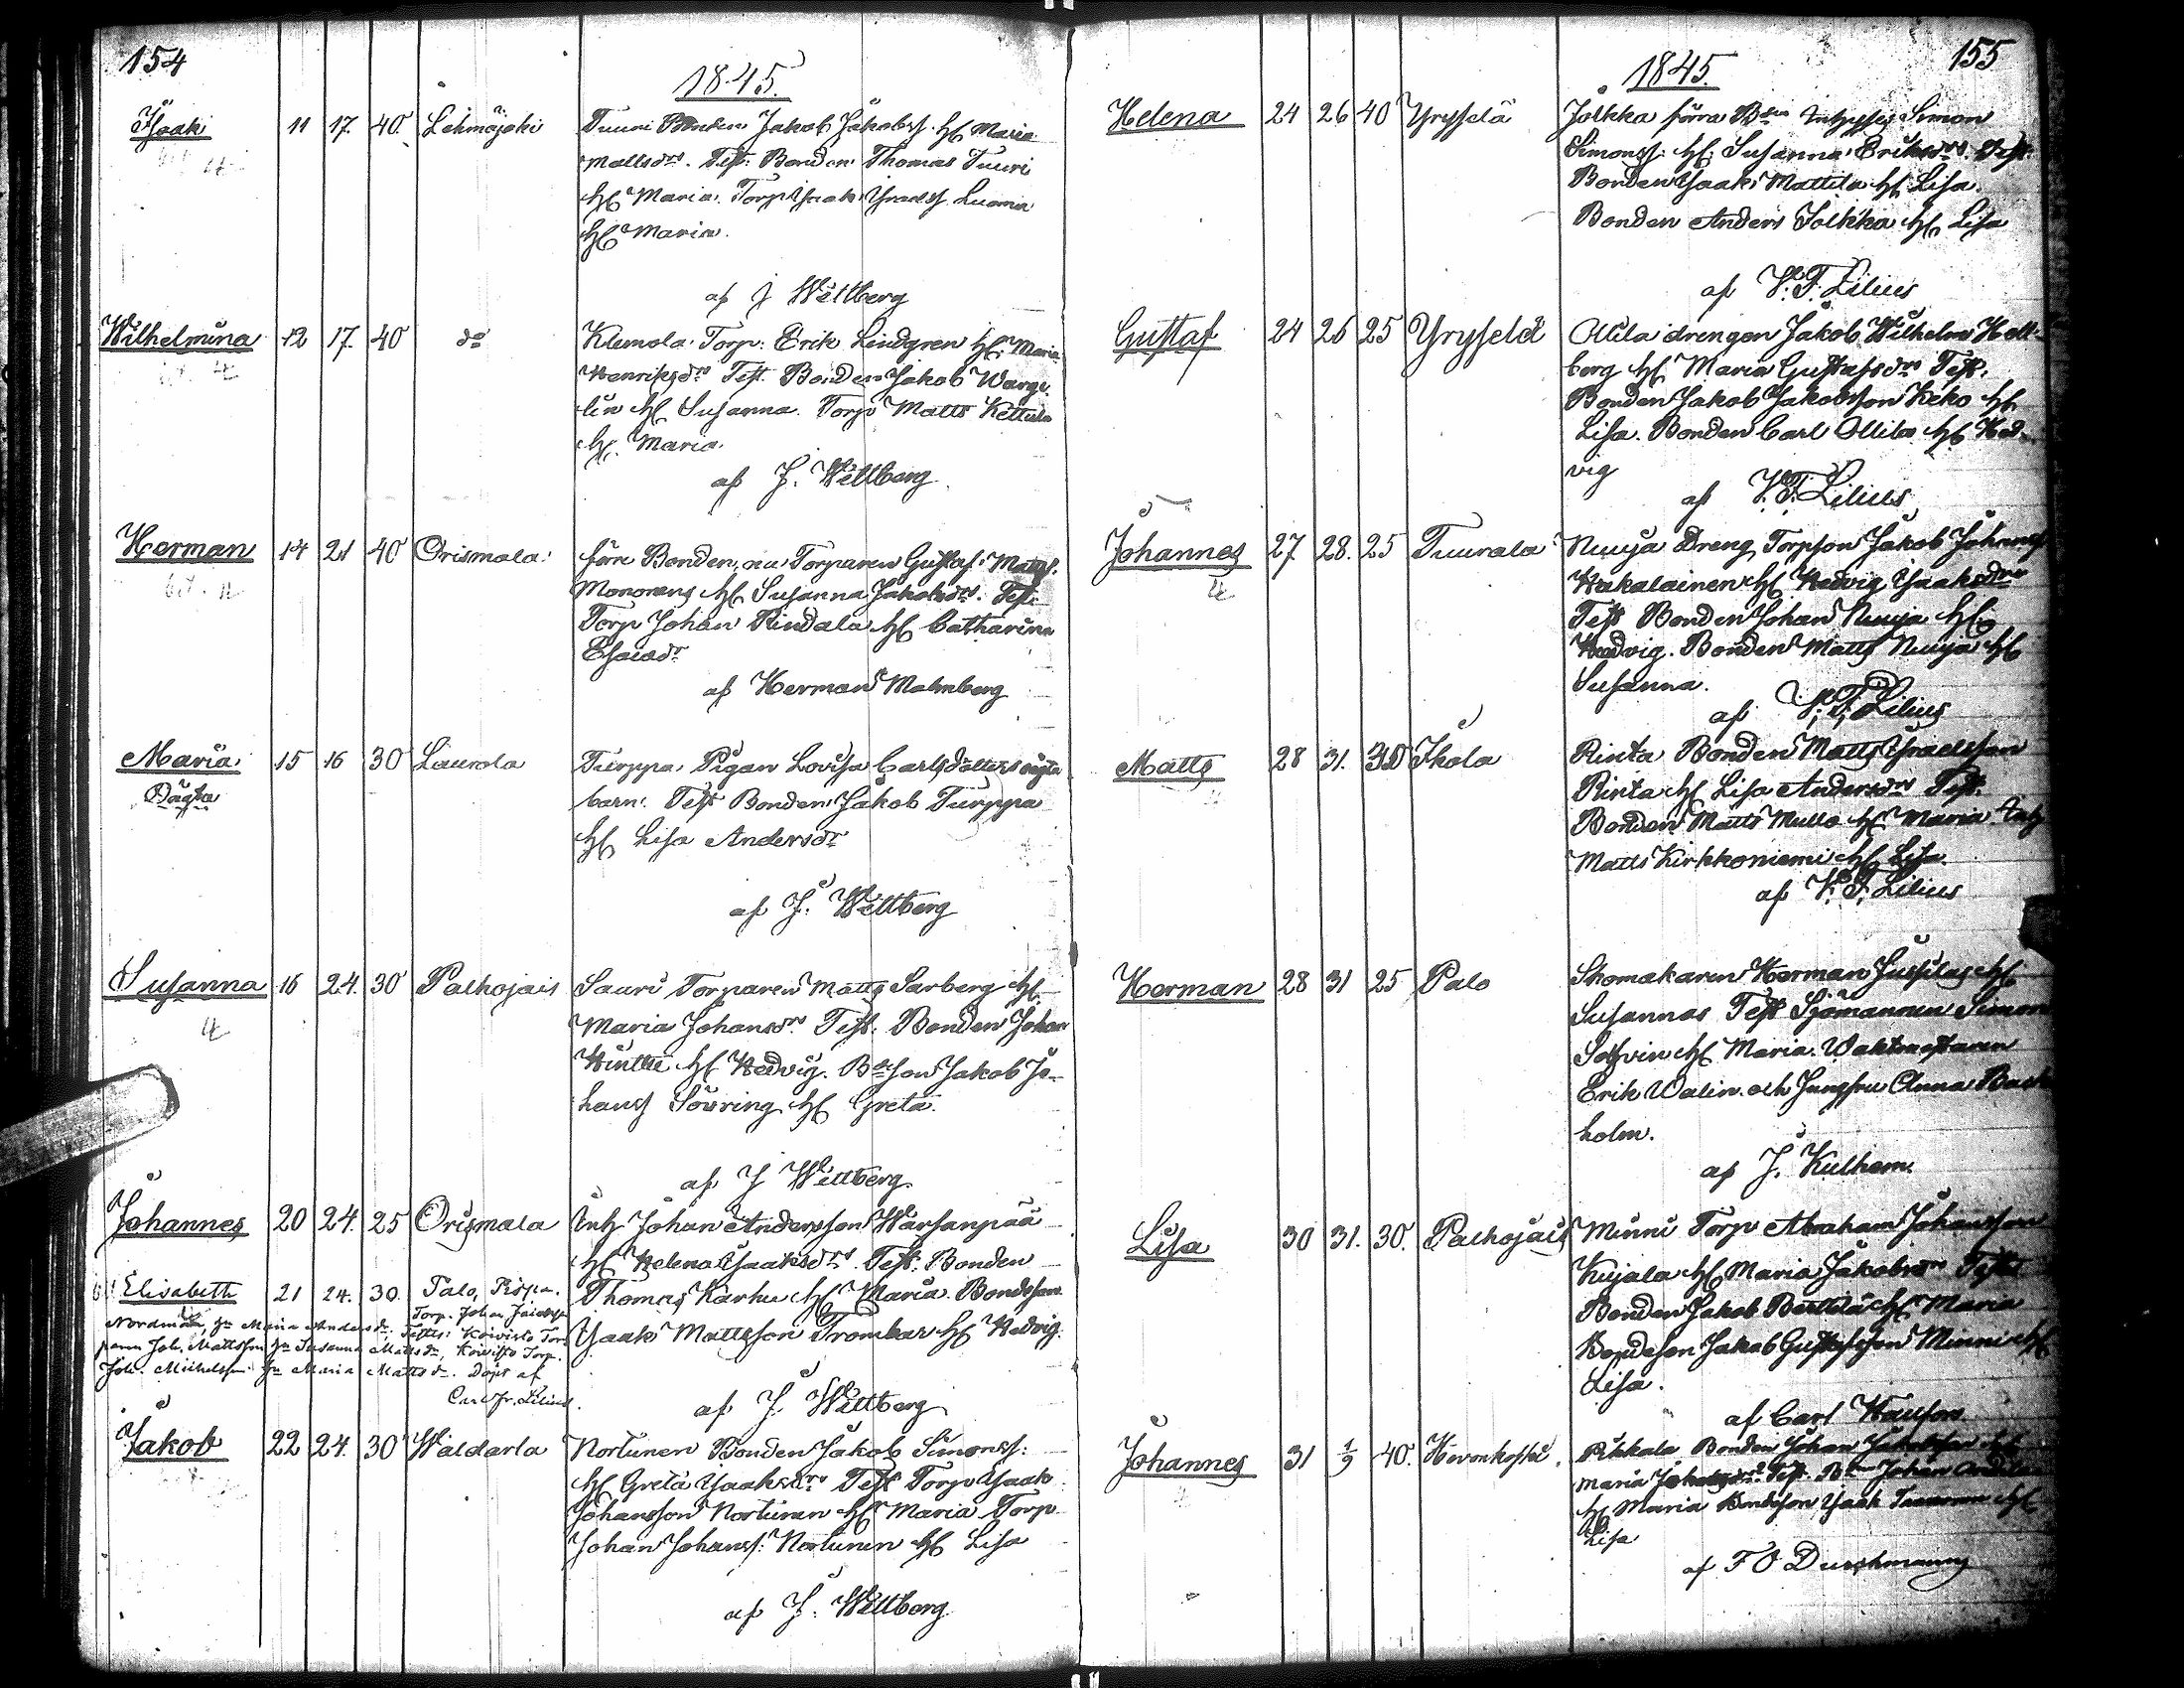 154
1845.
Isaak 11 17. 40. Lehmäjoki Tuuri Bonden Jakob Jakobss. H. Maria
Mattsdr. Test: Bonden Thomas Tuuri
H Maria. Torp Isaak Israelss. Luoma
H Maria.
af J Wettberg
Wilhelmina 12 17. 40 do Klemola Torp: Erik Lindgren H: Maria
Henriksdr Test. Bonden Jakob Warge-
lin H Susanna. Torp Matts Kettula
H. Maria.
af J. Wettberg
Herman 14 21 40 Orismala förre Bonden, nu Torparen Gustaf Mattss.
Monorens H Susanna Jakobsdr. Test:
Torp Johan Rindala H Catharina
Esaiædr
af Herman Malmberg
Maria 15 16 30 Laurola Turppa Pigan Lovisa Carlsdotters oägta
Oägta barn. Test Bonden Jakob Turppa
H Lisa Andersdr
af J. Wettberg
Susanna 16 24. 30 Palhojais Sauri Torparen Matts Sarberg H.
Maria Johansdr Test: Bonden Johan
H Hedvig. Bdeson Jakob Jo-
hanss Souring H Greta.
af J Wettberg.
Johannes 20 24. 25 Orismala Inh Johan Andersson Warsanpää
H Helena Isaaksdr. Test. Bonden
Thomas Karhu H Maria. Bondeson
Isaak Mattsson Trombar H Hedvig.
af J. Wettberg
Elisabeth 21 24. 30. Palo, Pispa.
Torp. Johan
Nordman, Hu Maria Andersdr. Testes: Koivisto Tor-
paren Joh. Mattsson Hu Susanna Mattsdr, Koivisto Torp.
Joh. Michelsson Hu Maria Mattsdr. Döpt af
Carl Fr. Lilius.
Jakob 22 24. 30 Waldarla Nortunen Bonden Jakob Simonss:
H Greta Isaaksdr Test Torp Isaak
Johansson Nortunen H Maria Torp
Johan Johanss: Nortunen H Lisa
af J. Wettberg
155
1845.
Helena 24 26 40 Yrysselä Jolkka förra Bden Inhysses Simon
Simonss: H: Susanna Eriksdr. Test.
Bonden Isaak Mattila H Lisa.
Bonden Anders Jolkka H. Lisa
af V. F. Lilius
Gustaf 24 26 25 Yrysselä Ollila drengen Jakob Wilhelm Holl-
berg H Maria Gustafsdr Test.
Bonden Jakob Jakobsson Keko H
Lisa. Bonden Carl Ollila H Hed-
vig
af V. F. Lilius
Johannes 27 28. 25 Tuurala Nuuja Dreng Torpson Jakob Johanss
Hakalainen H Hedvig Isaaksdr
Test Bonden Johan Nuuja H.
Hedvig. Bonden Matts Nuuja H
Susanna.
af V. F. Lilius
Matts 28 31. 30 Ikola Rinta Bonden Matts Israelsson
Rinta H Lisa Andersdr Test.
Bonden Matts Mullo H Maria. Inh
Matts Kirkkoniemi H Lisa.
af V. F. Lilius
Herman 28 31 25 Palo Skomakaren Herman Jussilas H
Susannas Test Sjömannen Simon
H Maria. Waktmästaren
Erik Walin och Jungfru Anna Back
holm.
af J. Kulhem.
Lisa 30 31. 30. Palhojais Minni Torp Abraham Johansson
Kujala H Maria Jakobsdr Test
Bonden Jakob Berttilä H Maria
Bondeson Jakob Gustafsson Minni H
Lisa.
af Carl
Johannes 31 1/9 40. Hevonkoski. Pukkala Bonden Johan Jakobsson H
Maria Test. Bden Johan
H Maria Bondeson Isaak H
Lisa
af F O Durchman